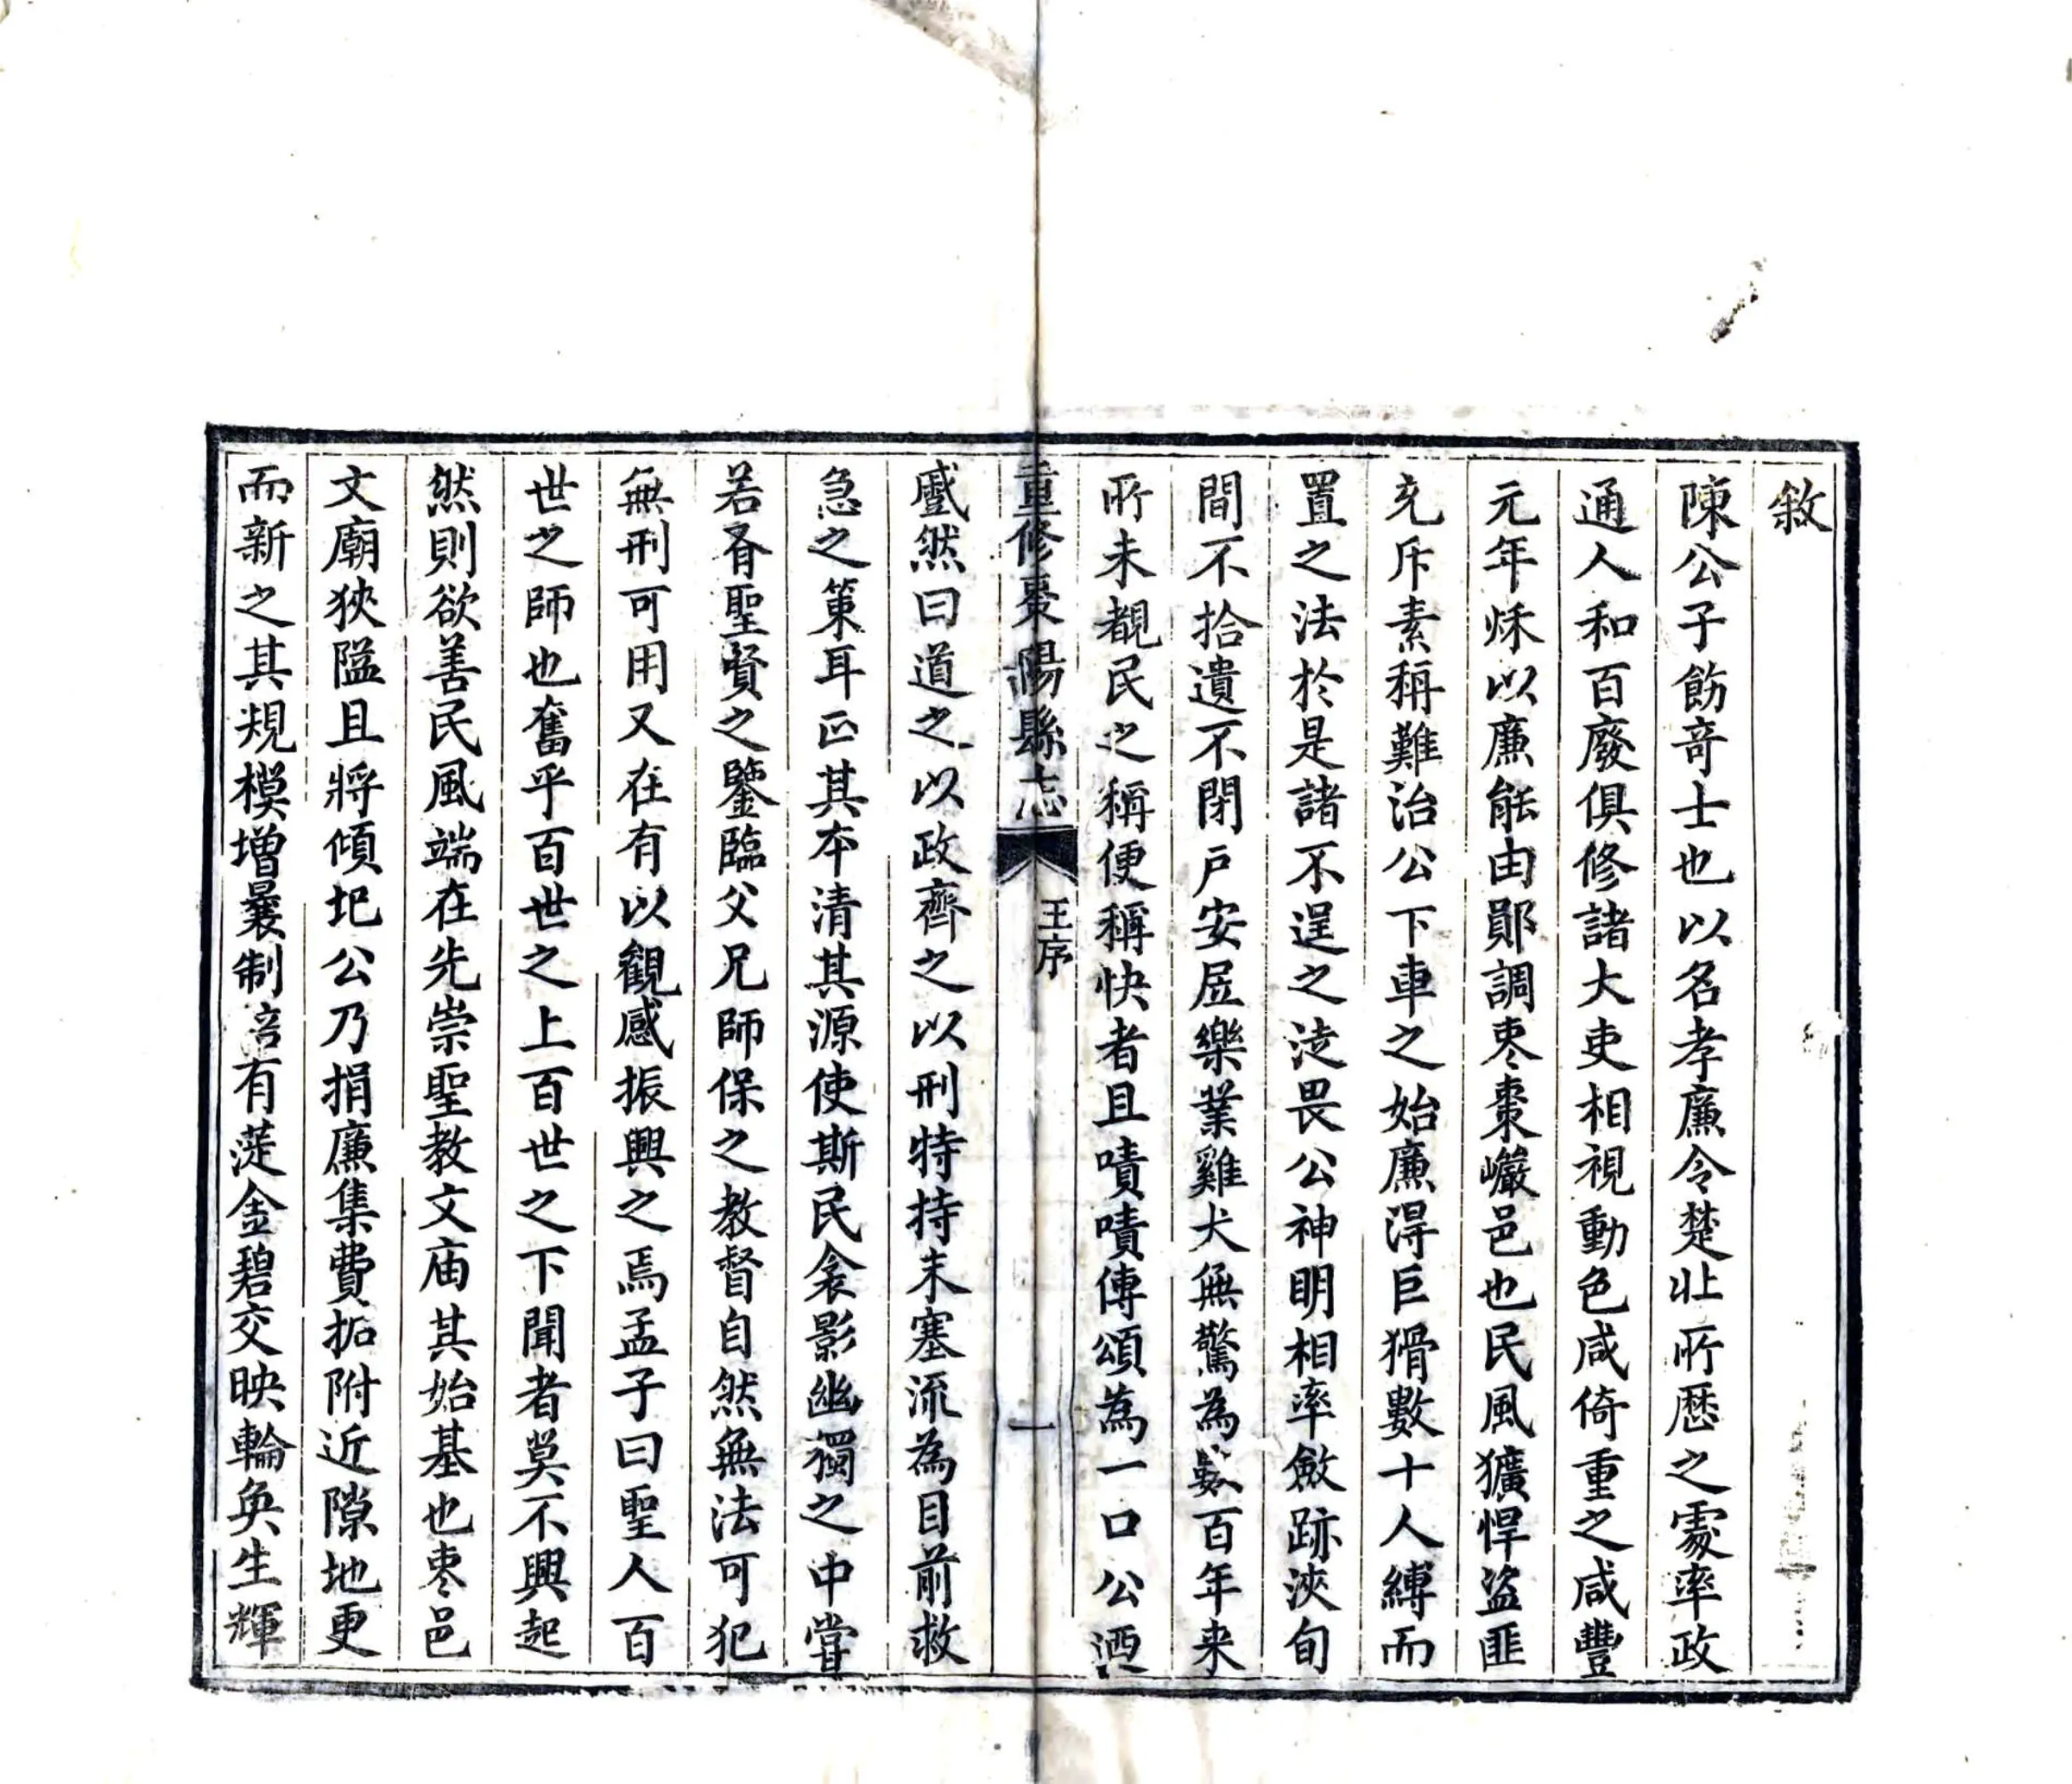 敘
陳公子飭竒士也以名孝廉令楚北所歴之處率政
通人和百廢俱修諸大吏相視動色咸倚重之咸豐
元年秌以廉能由鄖調枣棗巖邑也民風獷悍盜匪
充斥素稱難治公下車之始廉淂巨猾數十人縛而
置之法於是諸不逞之徒畏公神明相率斂跡浹旬
間不拾遺不閉戶安居樂業雞犬無驚為數百年来
所未覩民之稱便稱快者且嘖嘖傳頌為一口公迺
重修棗陽縣志
王序
一
蹙然曰道之以政齊之以刑特持末塞流為目前救
急之策耳正其本清其源使斯民衾影幽獨之中嘗
若有聖賢之鑒臨父兄師保之教督自然無法可犯
無刑可用又在有以觀感振興之焉孟子曰聖人百
世之師也奮乎百世之上百世之下聞者莫不興起
然則欲善民風端在先崇聖教文庙其始基也枣邑
文廟狹隘且將傾圯公乃捐廉集費拓附近隙地更
而新之其規模增曩制倍有蓰金碧交映輪奐生輝